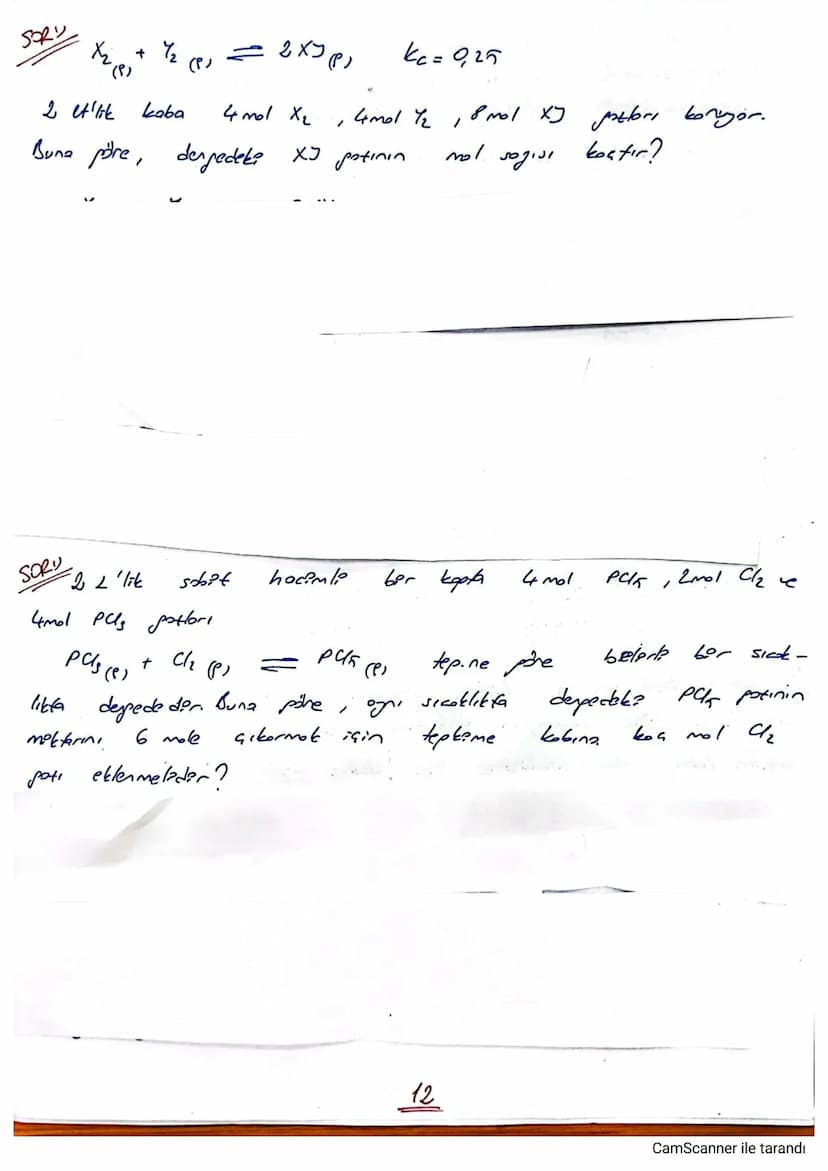 SORU
X₂(g) + Y₂(g) ⇌ 2XY(g) Kc = 0,25
2 lt'lik kaba 4 mol X₂, 4 mol Y₂, 8 mol XY gazları konuyor.
Buna göre, dengedeki XY gazının mol sayısı kaçtır?
SORU
2 L'lik sabit hacimli bir kapta 4 mol PCl₅, 2 mol Cl₂ ve
4 mol PCl₃ gazları
PCl₃(g) + Cl₂(g) ⇌ PCl₅(g) tep.ne göre belirli bir sıcak-
lıkta dengededir. Buna göre, aynı sıcaklıkta dengedeki PCl₅ gazının
miktarını 6 mole çıkarmak için tepkime kabına kaç mol Cl₂
gazı eklenmelidir?
12
CamScanner ile tarandı